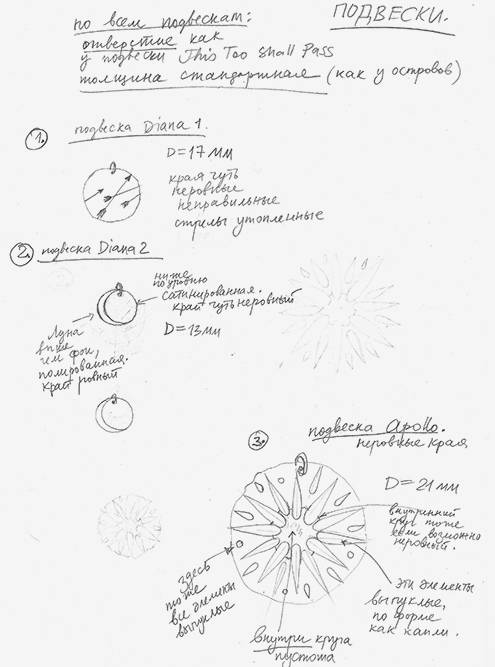 ПОДВЕСКИ.
по всем подвескам:
отверстие как
у подвески This Too Shall Pass
толщина стандартная (как у островов)
1. подвеска Diana 1.
D=17мм
края чуть
неровные
неправильные
стрелы утопленные
2. подвеска Diana 2
ниже
по уровню
сатинированная.
край чуть неровный
D=13мм
Луна
выше
чем фон,
полированная.
край ровный
3. подвеска Apollo.
неровные края
D=21мм
внутренний
круг тоже
если возможно
неровный.
здесь
тоже
все элементы
выпуклые
эти элементы
выпуклые,
по форме
как капли.
внутри круга
пустота